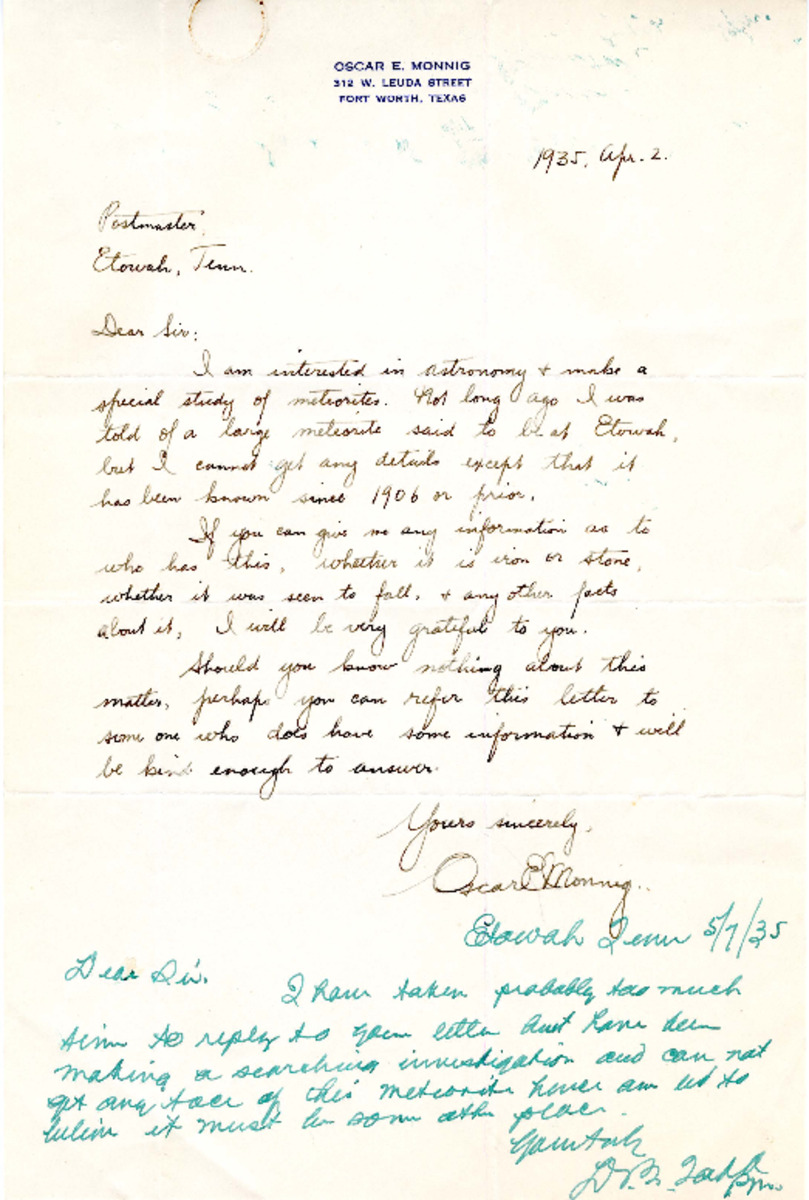 OSCAR E. MONNIG
312 W. LEUDA STREET
FORT WORTH, TEXAS
1935, Apr. 2.
Postmaster,
Etowah, Tenn.
Dear Sir:
I am interested in astronomy + make a
special study of meteorites. Not long ago I was
told of a large meteorite said to be at Etowah,
but I cannot get any details except that it
has been known since 1906 or prior.
If you can give me any information as to
who has this, whether it is iron or stone,
whether it was seen to fall, + any other facts
about it, I will be very grateful to you.
Should you know nothing about this
matter, perhaps you can refer this letter to
some one who does have some information + will
be kind enough to answer.
Yours sincerely,
Oscar E Monnig.
Etowah Tenn 5/7/35
Dear Sir.
I have taken probably too much
time to reply to your letter But have been
making a searching investigation and can not
get any trace of this meteorite hence am led to
believe it must be some other place.
Yours truly